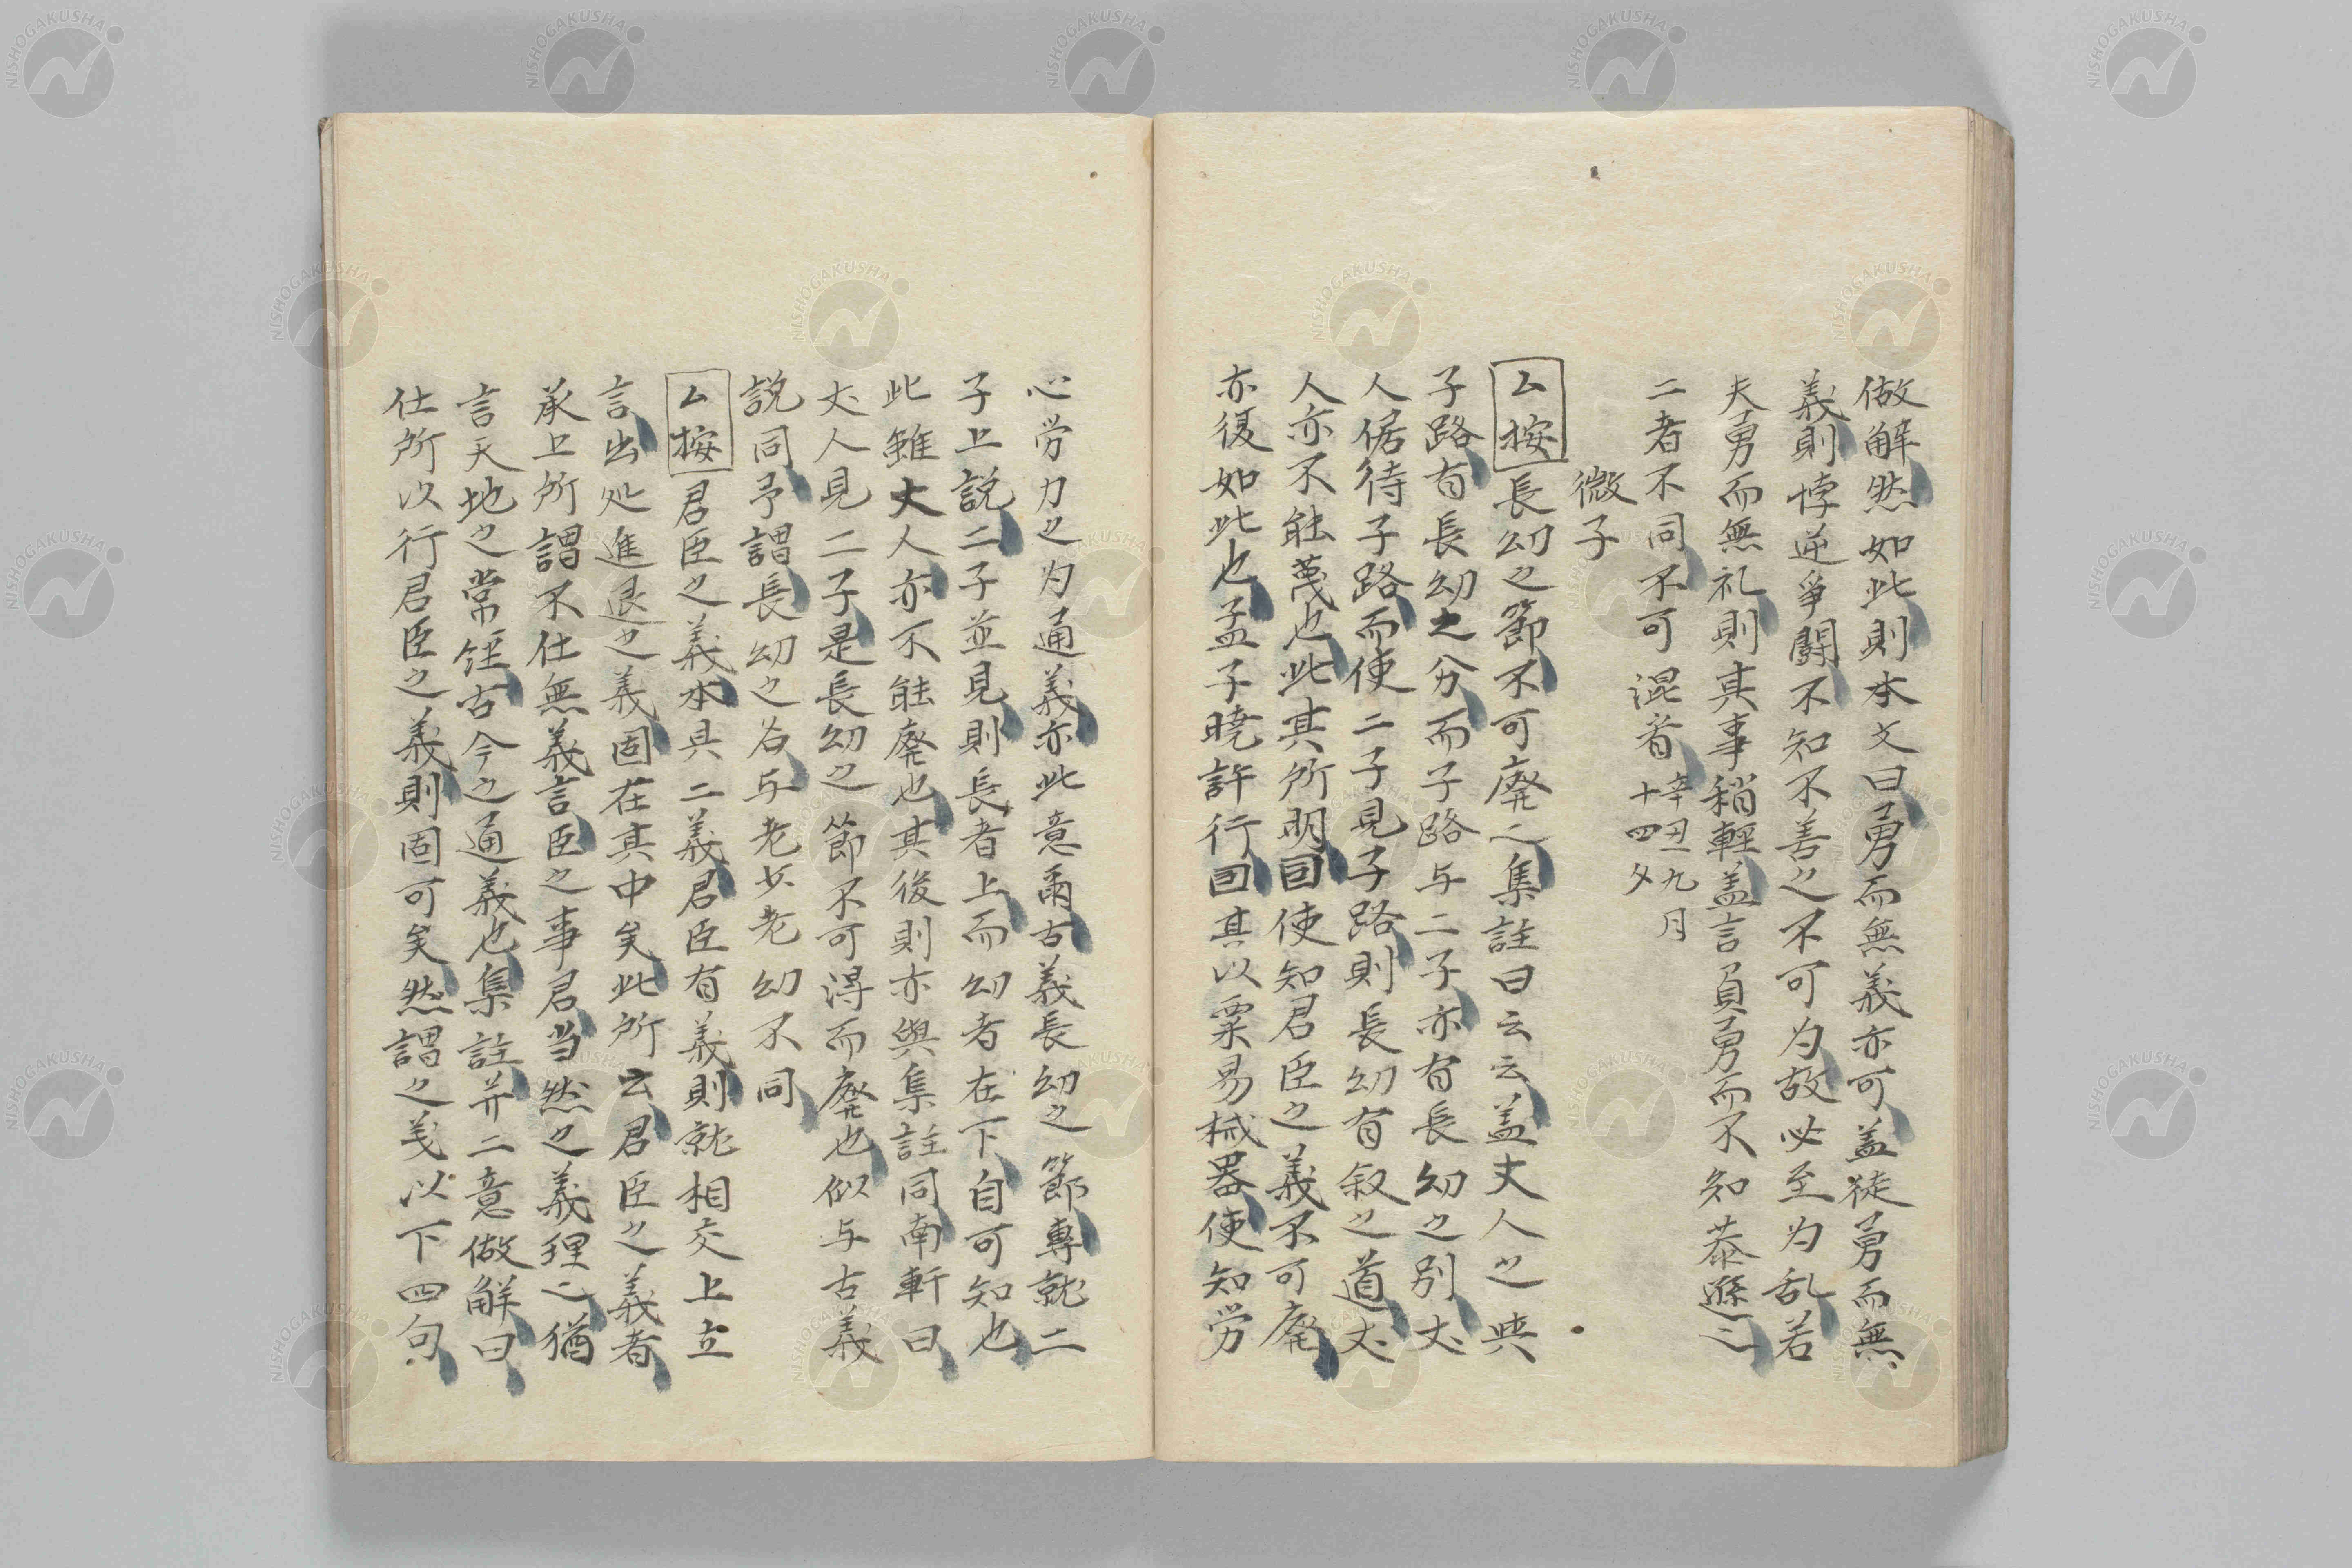 做解然如此則本文曰勇而無義亦可盖徒勇而無
義則悖逆爭鬪不知不善之不可为故必至为乱若
夫勇而無礼則其事稍輕盖言負勇而不知恭遜之
二者不同不可混看 辛丑九月十四夕
微子
厶按 長幼之節不可廢之集註曰云云盖丈人之與
子路有長幼之分而子路与二子亦有長幼之別丈
人倨待子路而使二子見子路則長幼有叙之道丈
人亦不能蔑也此其所明因使知君臣之義不可廢
亦復如此也孟子曉許行因其以粟易械器使知労
心労力之为通義亦此意爾古義長幼之節專就二
子上説二子並見則長者上而幼者在下自可知也
此雖大人亦不能廢也其後則亦與集註同南軒曰
丈人見二子是長幼之節不可得而廢也似与古義
説同予謂長幼之名与老少老幼不同
厶按 君臣之義本具二義君臣有義則就相交上立
言出処進退之義固在其中矣此所云君臣之義者
承上所謂不仕無義言臣之事君当然之義理之猶
言天地之常経古今之通義也集註并二意做解曰
仕所以行君臣之義則固可矣然謂之义以下四句